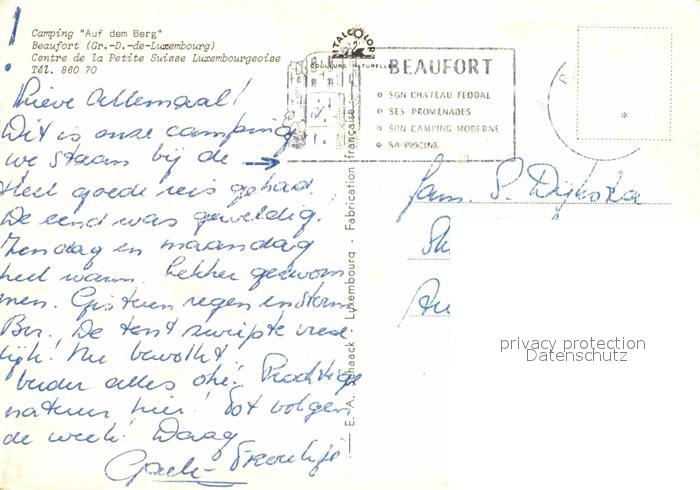 Camping "Auf dem Berg"
Beaufort (Gr.-D.-de-Luxembourg)
Centre de la Petite Suisse Luxembourgeoise
Tél. 860 70
Lieve Allemaal!
Dit is onze camping
we staan bij de →
Heel goede reis gehad.
De eend was geweldig!
Zondag en maandag
heel warm. Lekker gezwom
men. Gisteren regen en storm
Brr. De tent zwiepte vrese
lijk! Nu bewolkt.
Verder alles oké! Prachtige
natuur hier! Tot volgen
de week! Daag
BEAUFORT
SON CHATEAU FEODAL
SES PROMENADES
SON CAMPING MODERNE
SA PISCINE
COULEURS NATURELLES
E. A. Schaack - Luxembourg - Fabrication française
Fam. S. Dijkstra
privacy protection
Datenschutz